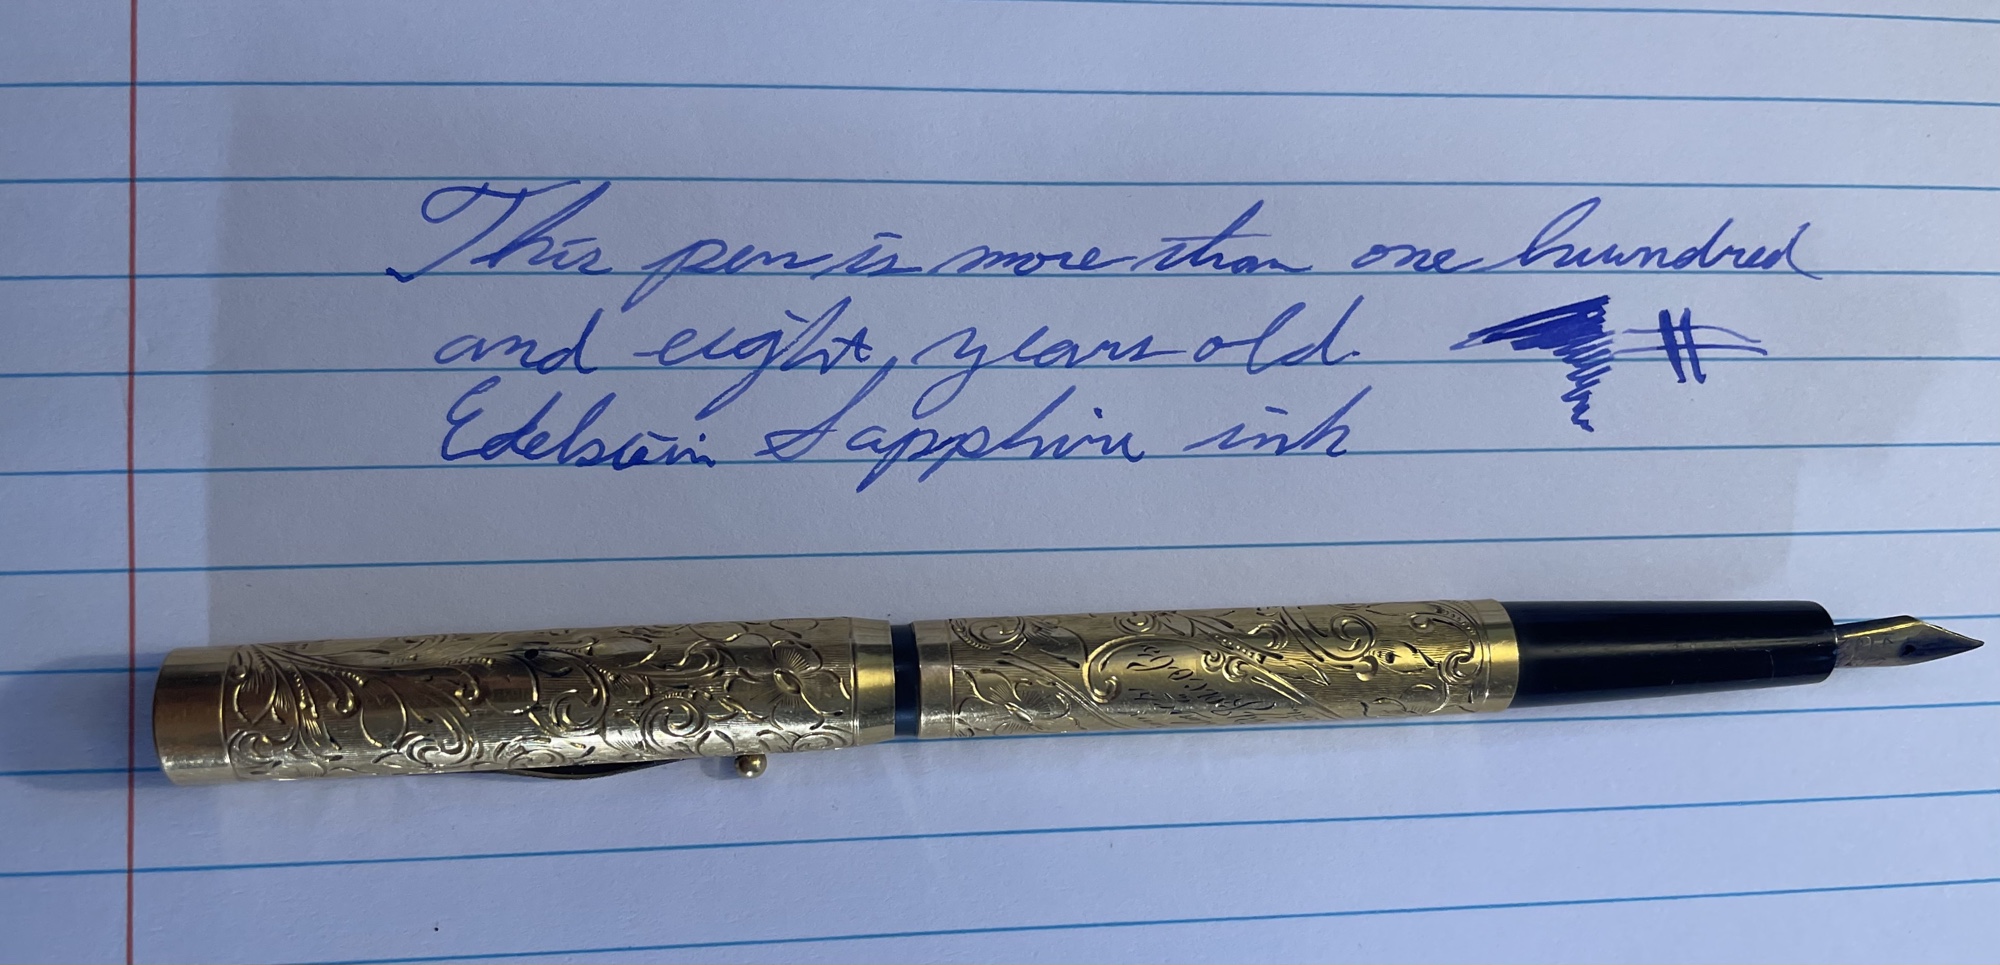 This pen is more than one hundred
and eight years old.
Edelstein Sapphire ink